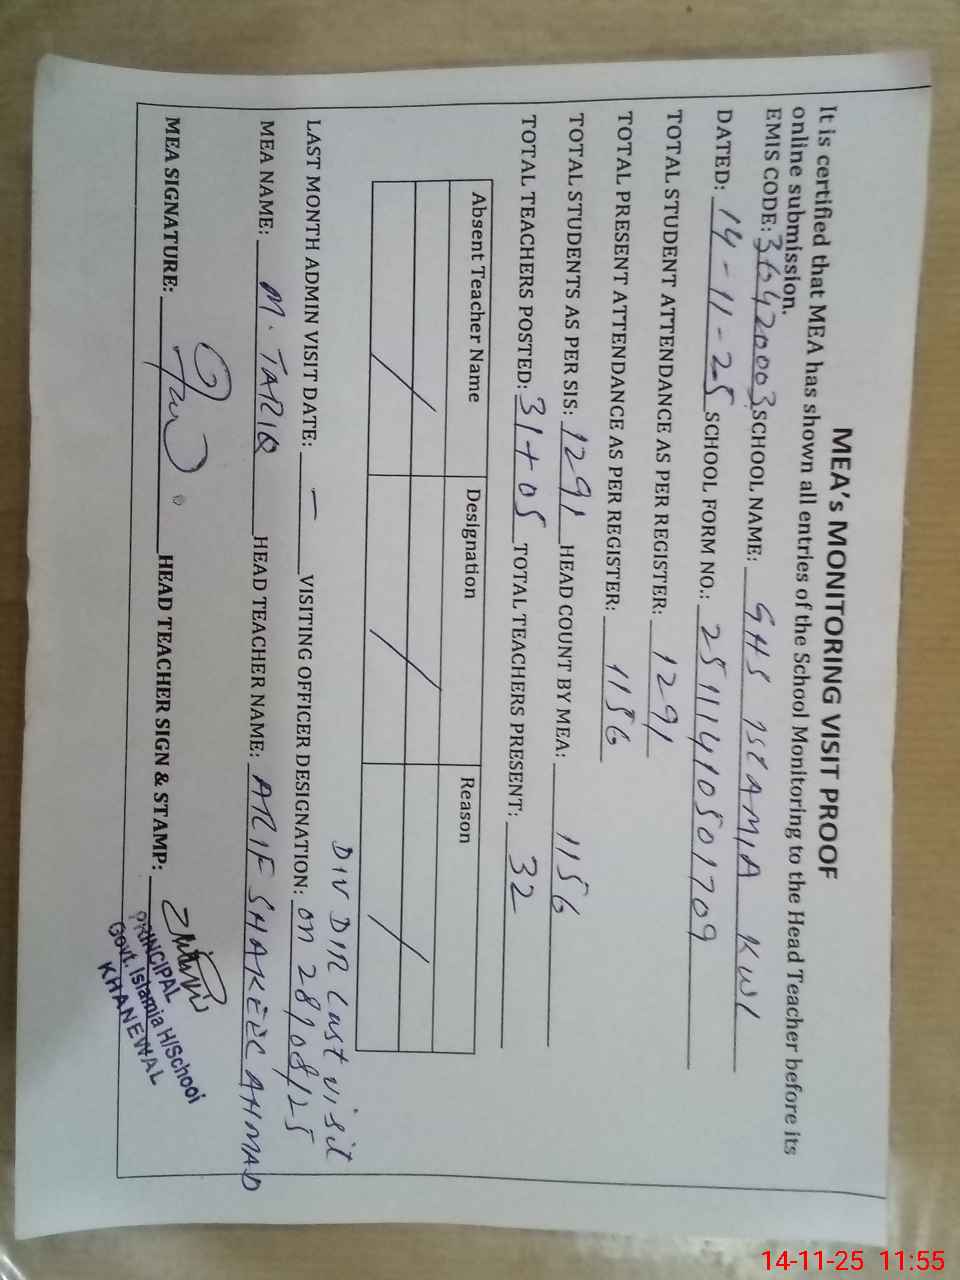 MEA's MONITORING VISIT PROOF
It is certified that MEA has shown all entries of the School Monitoring to the Head Teacher before its
online submission.
EMIS CODE: 36420003 SCHOOL NAME: GHS ISLAMIA KWL
DATED: 14-11-25 SCHOOL FORM NO.: 25111410501709
TOTAL STUDENT ATTENDANCE AS PER REGISTER: 1291
TOTAL PRESENT ATTENDANCE AS PER REGISTER: 1156
TOTAL STUDENTS AS PER SIS: 1291 HEAD COUNT BY MEA: 1156
TOTAL TEACHERS POSTED: 31+05 TOTAL TEACHERS PRESENT: 32
Absent Teacher Name Designation Reason
/ / /
DIV DIR Last visit
LAST MONTH ADMIN VISIT DATE: — VISITING OFFICER DESIGNATION: on 28/08/25
MEA NAME: M. TARIQ HEAD TEACHER NAME: ARIF SHAKEEL AHMAD
MEA SIGNATURE: HEAD TEACHER SIGN & STAMP:
PRINCIPAL
Govt. Islamia H/School
KHANEWAL
14-11-25 11:55